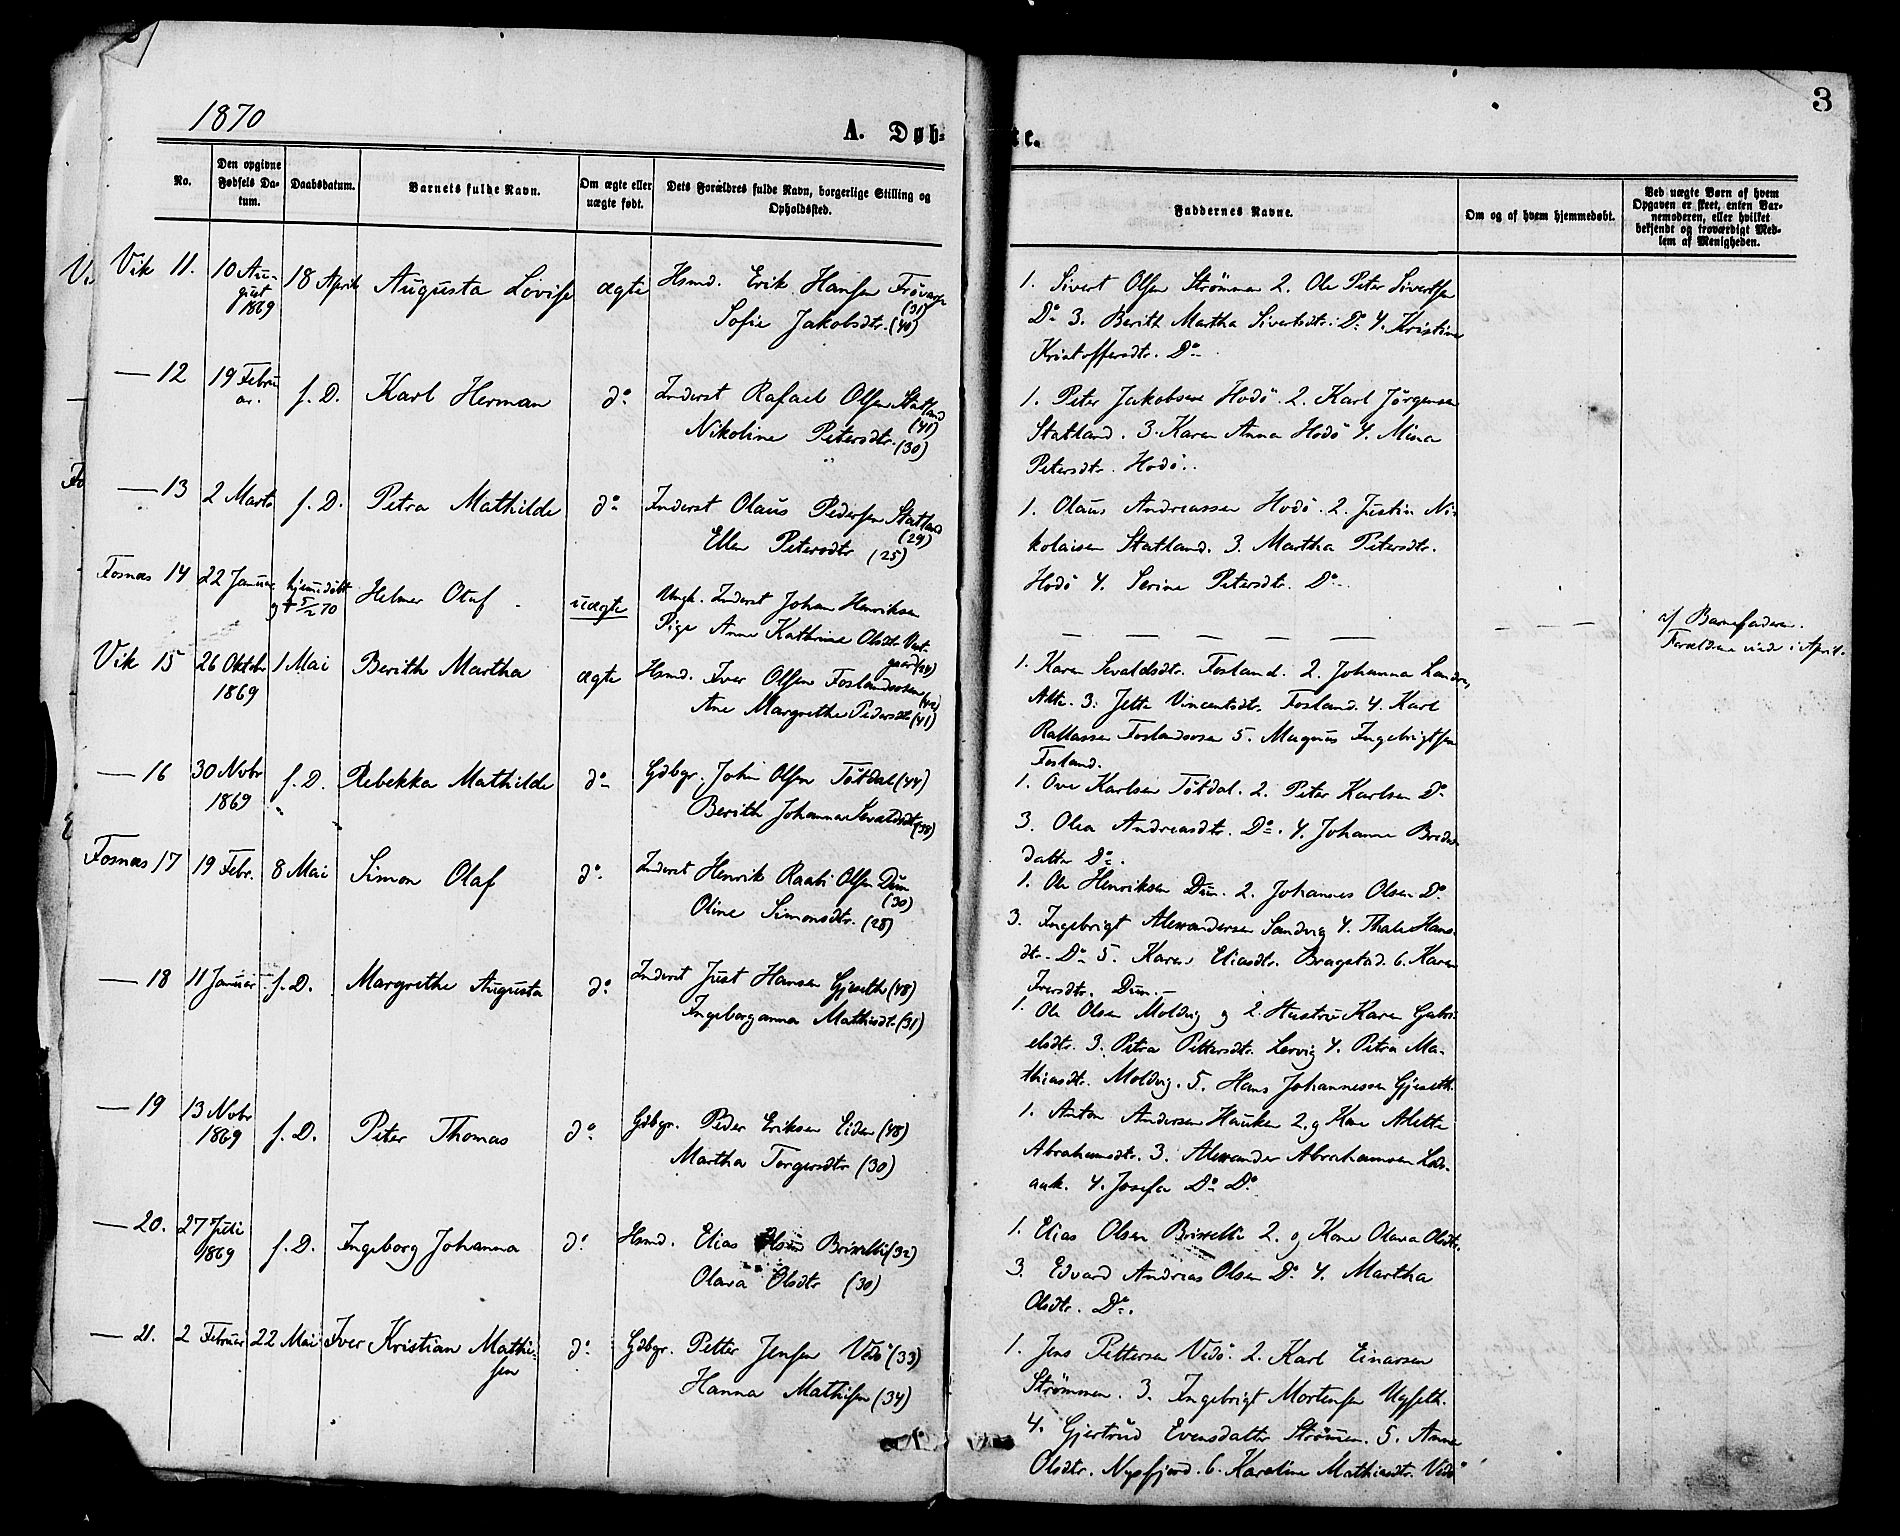 1870
A. Døb-
te.
3
No.
Den opgivne Fødsels Da-tum.
Daabsdatum.
Barnets fulde Navn.
Om ægte eller uægte født.
Dets Forældres fulde Navn, borgerlige Stilling og Opholdssted.
Faddernes Navne.
Om og af hvem hjemmedøbt.
Ved uægte Børn af hvem Opgaven er skeet, enten Bar-nemoderen, eller hvilket bekjendt og troværdigt Med-lem af Menigheden.
Vik 11. 10 Au- 18 April Augusta Lovise ægte Hsmd. Erik Hansen
gust
1869 (31)
Sofie Jakobsdtr. (40)
1. Sivert Olsen Strømmen 2. Ole Peter Sivertsen
Do 3. Berith Martha Sivertsdtr. Do 4. Kristine
Kristoffersdtr. Do
— 12 19 Febru f. D. Karl Herman do Inderst Rafael Olsen Statland
ar. (41)
Nikoline Petersdtr. (30)
1. Peter Jakobsen Hodø 2. Karl Jörgensen
Statland. 3. Karen Anna Hodö 4. Mina
Petersdtr. Hodö.
— 13 2 Marts f. D. Petra Mathilde do Inderst Olaus Pedersen Statland
(29)
Ellen Petersdtr (25)
1. Olaus Andreassen Hodö. 2. Justin Ni-
kolaisen Statland. 3. Martha Petersdtr.
Hodö 4. Serine Petersdtr. Do
Fosnæs 14 22 Januar hjemmedøbt Helmer Olaf uægte Ungk. Inderst Johan Henriksen
og + 5/2 70
Pige Anne Kathrine Olsdtr Vest-
gaard (24)
— — — — —
af Barnefaderen.
Forældrene viede i April.
Vik 15 26 Oktobr 1 Mai Berith Martha ægte Hsmd. Iver Olsen Foslandsosen
1869 (42)
Ane Margrethe Pedersdtr (41)
1. Karen Sevaldsdtr. Fosland. 2. Johanna
3. Jette Vincentsdtr. Fosland. 4. Karl
Rallassen Foslandsosen 5. Magnus Ingebrigtsen
Fosland.
— 16 30 Novbr f. D. Rebekka Mathilde do Gdbgr. John Olsen Tötdal (44)
1869
Berith Johanna Sevaldsdtr (38)
1. Ove Karlsen Tötdal. 2. Peter Karlsen Do
3. Olea Andreasdtr. Do. 4. Johanna
datter Do.
Fosnæs 17 19 Febr. 8 Mai Simon Olaf do Inderst Henrik Raabi Olsen Dun
(30)
Oline Simonsdtr. (28)
1. Ole Henriksen Dun. 2. Johannes Olsen Do
3. Ingebrigt Alexandersen Sandvig 4. Thale Hans-
dtr. Do 5. Karen Eliasdtr. Bragstad. 6. Karen
Iversdtr. Dun.
— 18 11 Januar f. D. Margrethe Augusta do Inderst Just Hansen Gjeseth (48)
Ingeborganna Mathisdtr. (31)
1. Ole Olsen Moldvig og 2. Hustru Karen Gabri-
elsdtr. 3. Petra Pettersdtr. Lervig 4. Petra Ma-
thiasdtr. Moldvig. 5. Hans Johannessen Gjeseth.
— 19 13 Novbr f. D. Peter Thomas do Gdbgr. Peder Eriksen Eiden (48)
1869
Martha Torgersdtr (30)
1. Anton Andersen Hauken 2. og Kone Alette
Abrahamsdtr. 3. Alexander Abrahamsen
4. Josefa Do Do
— 20. 27 Juli f. D. Ingeborg Johanna do Hsmd. Elias Olsen (32)
1869
Olava Olsdtr (30)
1. Elias Olsen 2. og Kone Olava Olsdtr.
3. Edvard Andreas Olsen Do 4. Martha
Olsdtr. Do.
— 21. 2 Februar 22 Mai Iver Kristian Mathi- do Gdbgr. Petter Jensen Vedö (33)
sen
Hanna Mathisen (34)
1. Jens Pettersen Vedö. 2. Karl Einarsen
Strømmen. 3. Ingebrigt Mortensen Ugseth.
4. Gjertrud Evensdatter Strømmen. 5. Anne
Olsdtr. Nysfjord. 6. Karoline Mathiasdtr. Vedö